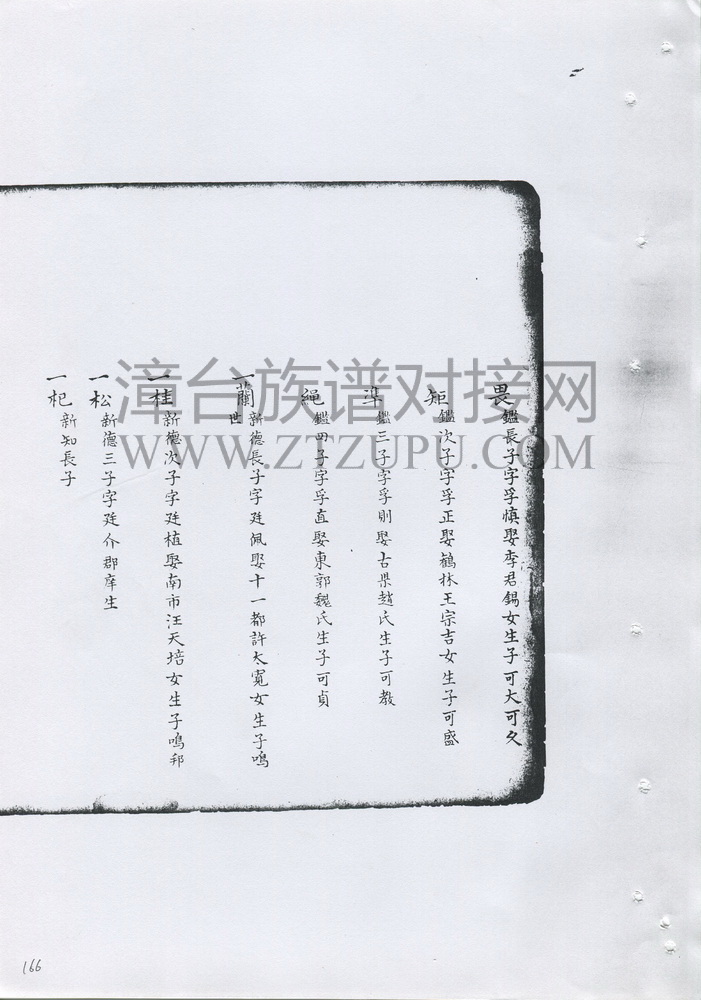 畏鑑長子字孚慎娶李君錫女生子可大可久
矩鑑次子字孚正娶鶴林王宗吉女生子可盛
準鑑三子字孚則娶古渠趙氏生子可教
繩鑑四子字孚直娶東郭魏氏生子可貞
一蘭新德長子字廷佩娶十一都許太寬女生子鳴
世
一桂新德次子字廷植娶南市汪天培女生子鳴邦
一松新德三子字廷介郡庠生
一杞新知長子
漳台族谱对接网
WWW.ZTZUPU.COM
166